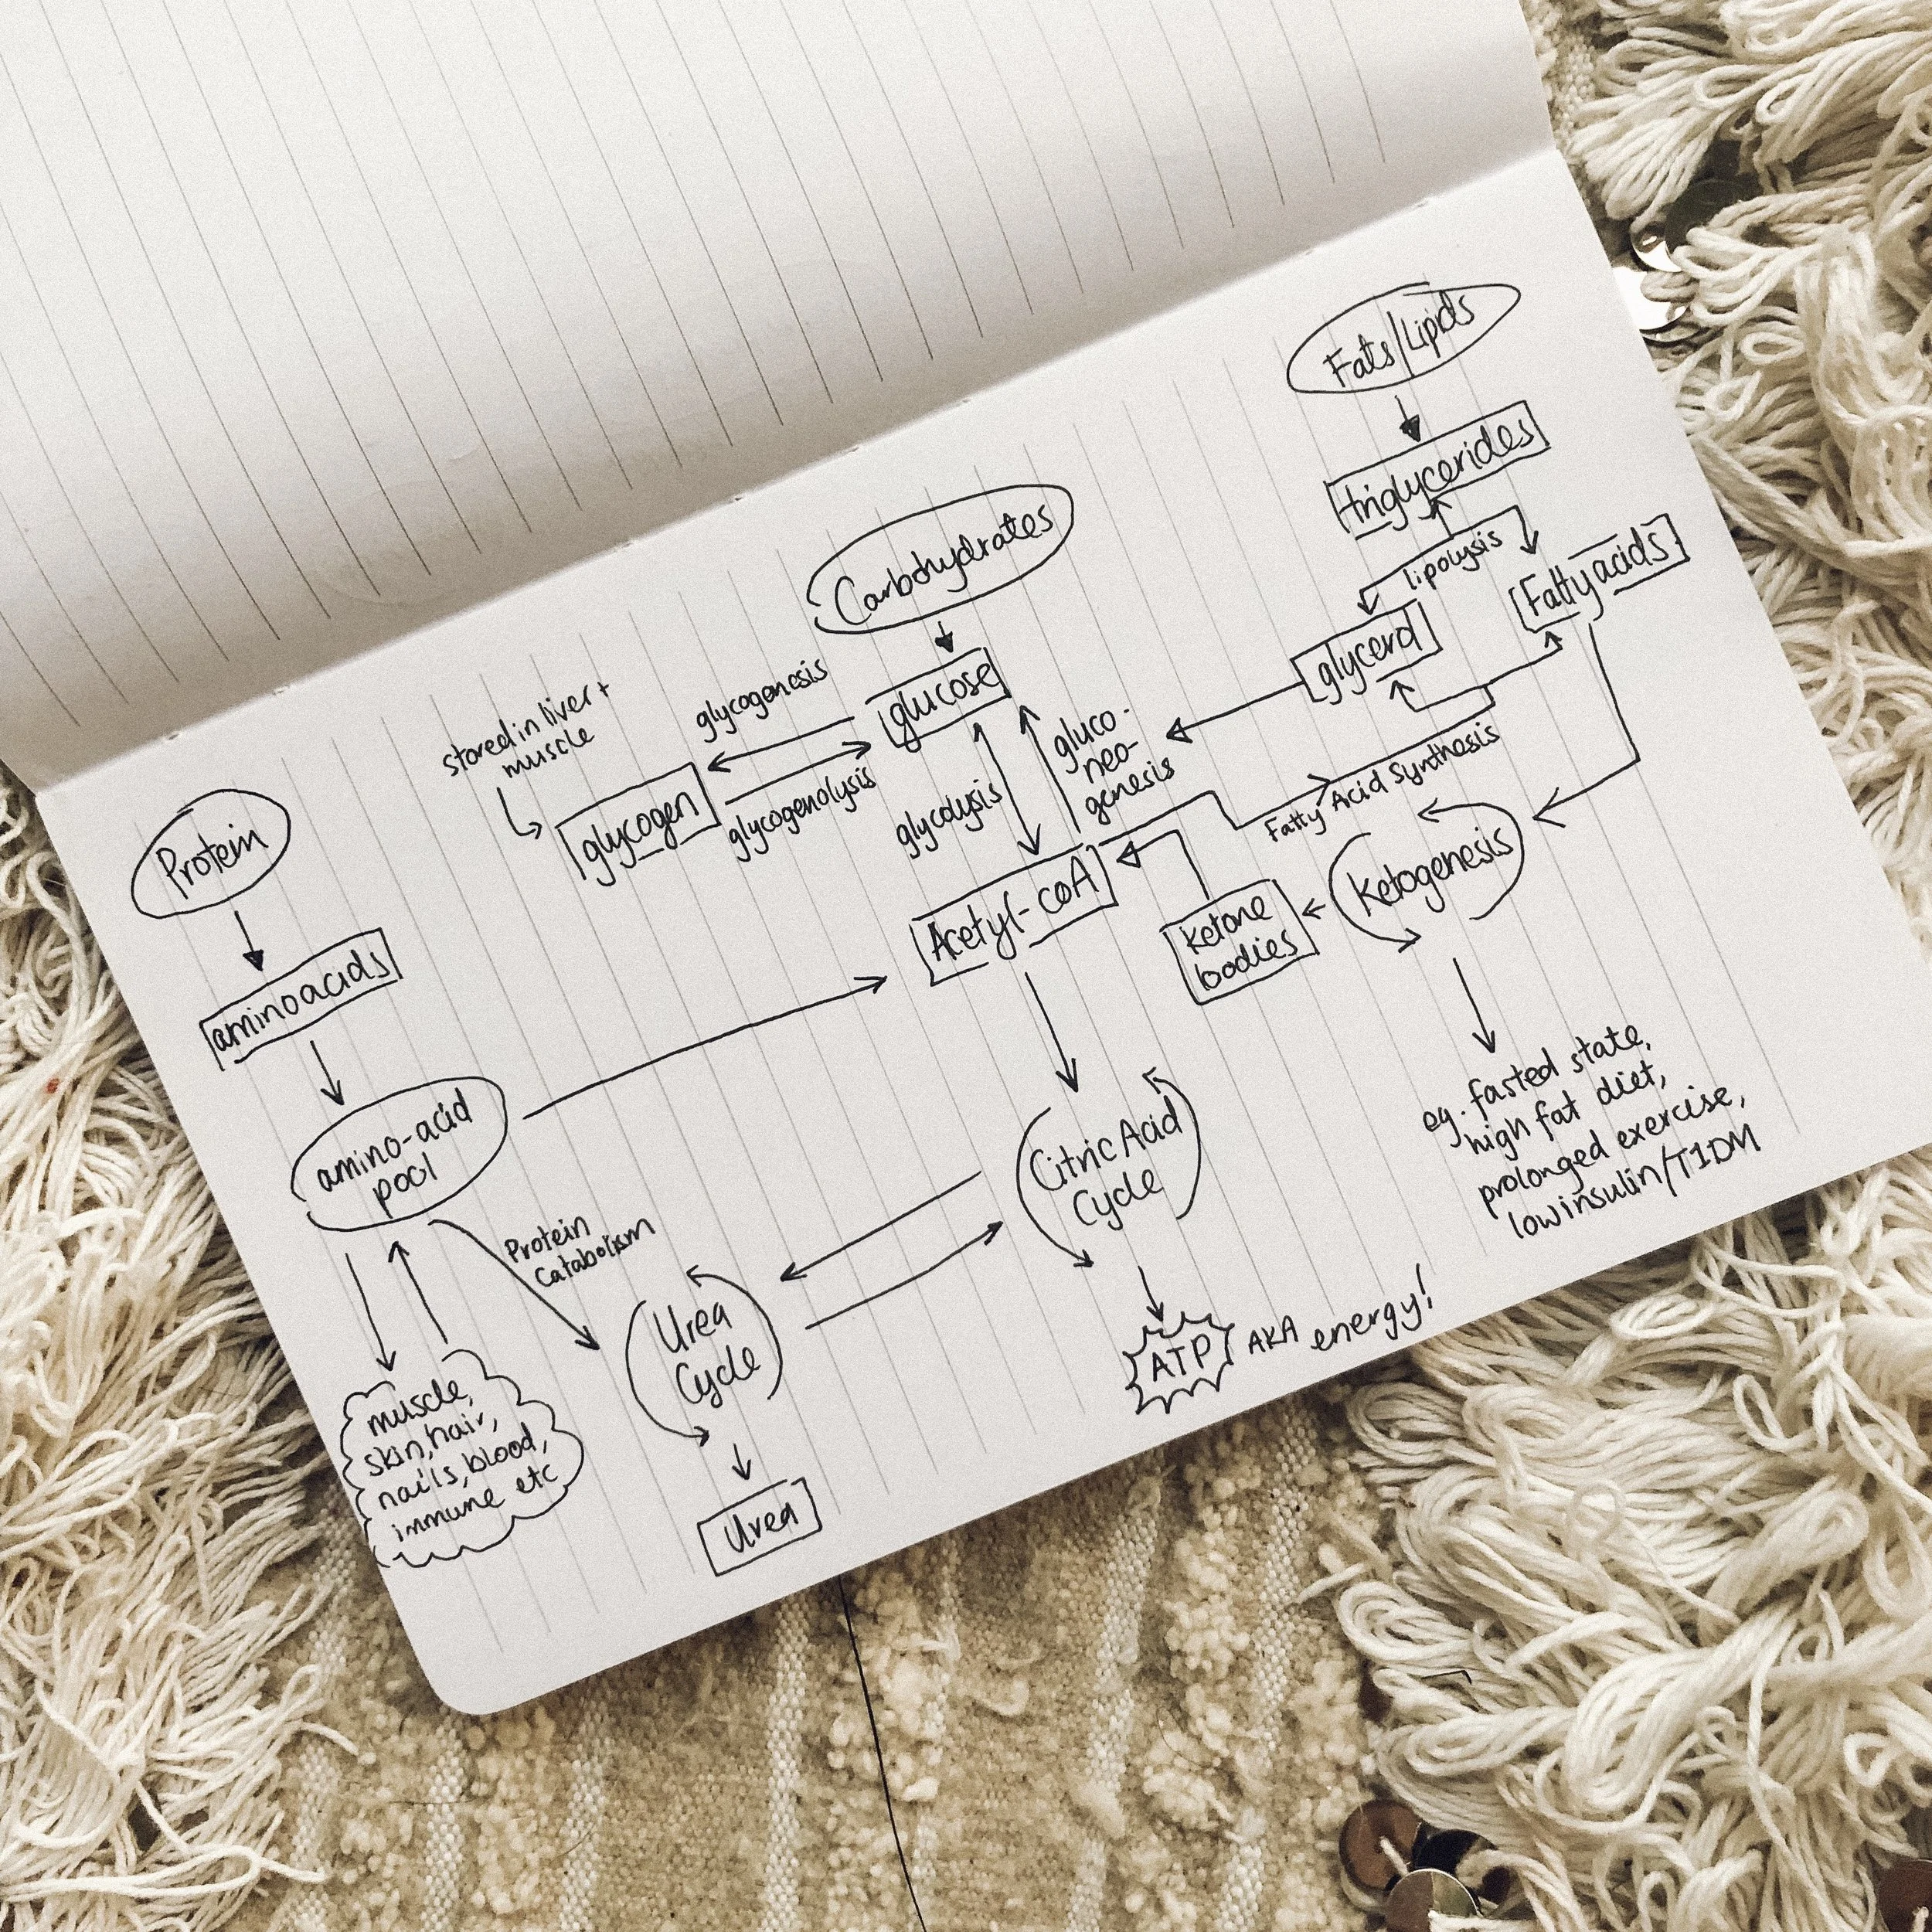 Fats/Lipids
triglycerides
lipolysis
Fatty acids
glycerol
Carbohydrates
glucose
glycogenesis
stored in liver +
muscle
glycogen
glycogenolysis
glycolysis
gluco-
neo-
genesis
Fatty Acid Synthesis
Ketogenesis
Ketone
bodies
Acetyl-coA
Protein
amino acids
amino-acid
pool
Protein
Catabolism
Citric Acid
Cycle
eg. fasted state,
high fat diet,
prolonged exercise,
low insulin/T1DM
Urea
Cycle
ATP AKA energy!
muscle,
skin, hair,
nails, blood,
immune etc
Urea